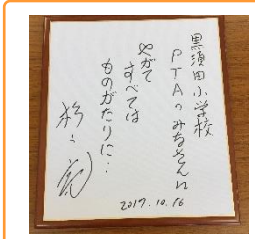 黒須田小学校
PTAのみなさんに
やがて
すべては
ものがたりに…
2017.10.16